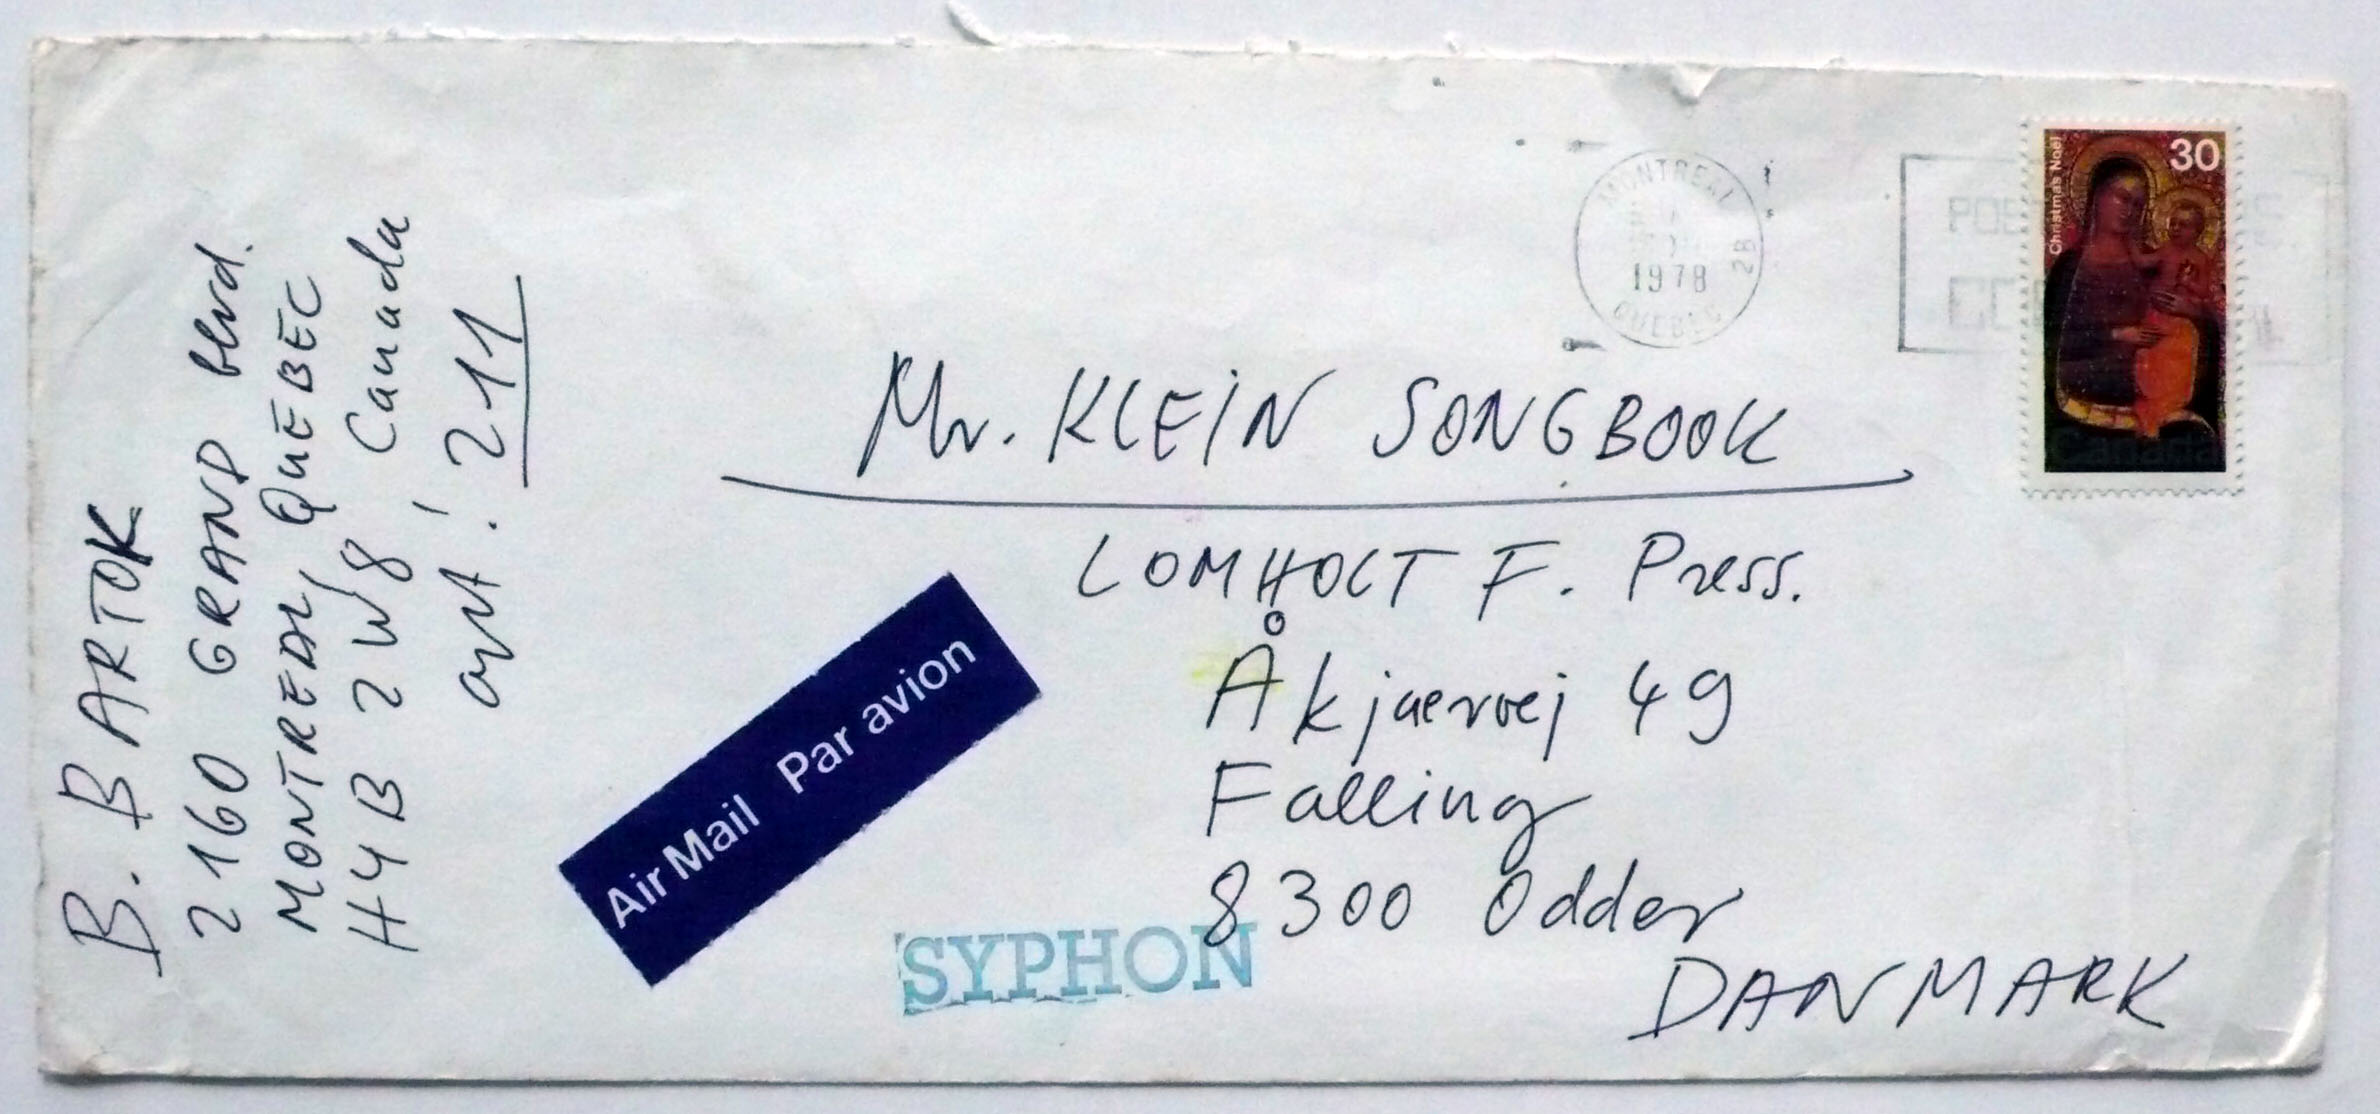 B. BARTOK
2160 GRAND blvd.
MONTREAL QUEBEC
H4B 2W8 Canada
apt. 211
MONTREAL
1978
2B
QUEBEC
Christmas Noël
30
Canada
Mr. KLEIN SONGBOOK
LOMHOLT F. Press.
Åkjaervej 49
Falling
8300 Odder
DANMARK
Air Mail Par avion
SYPHON